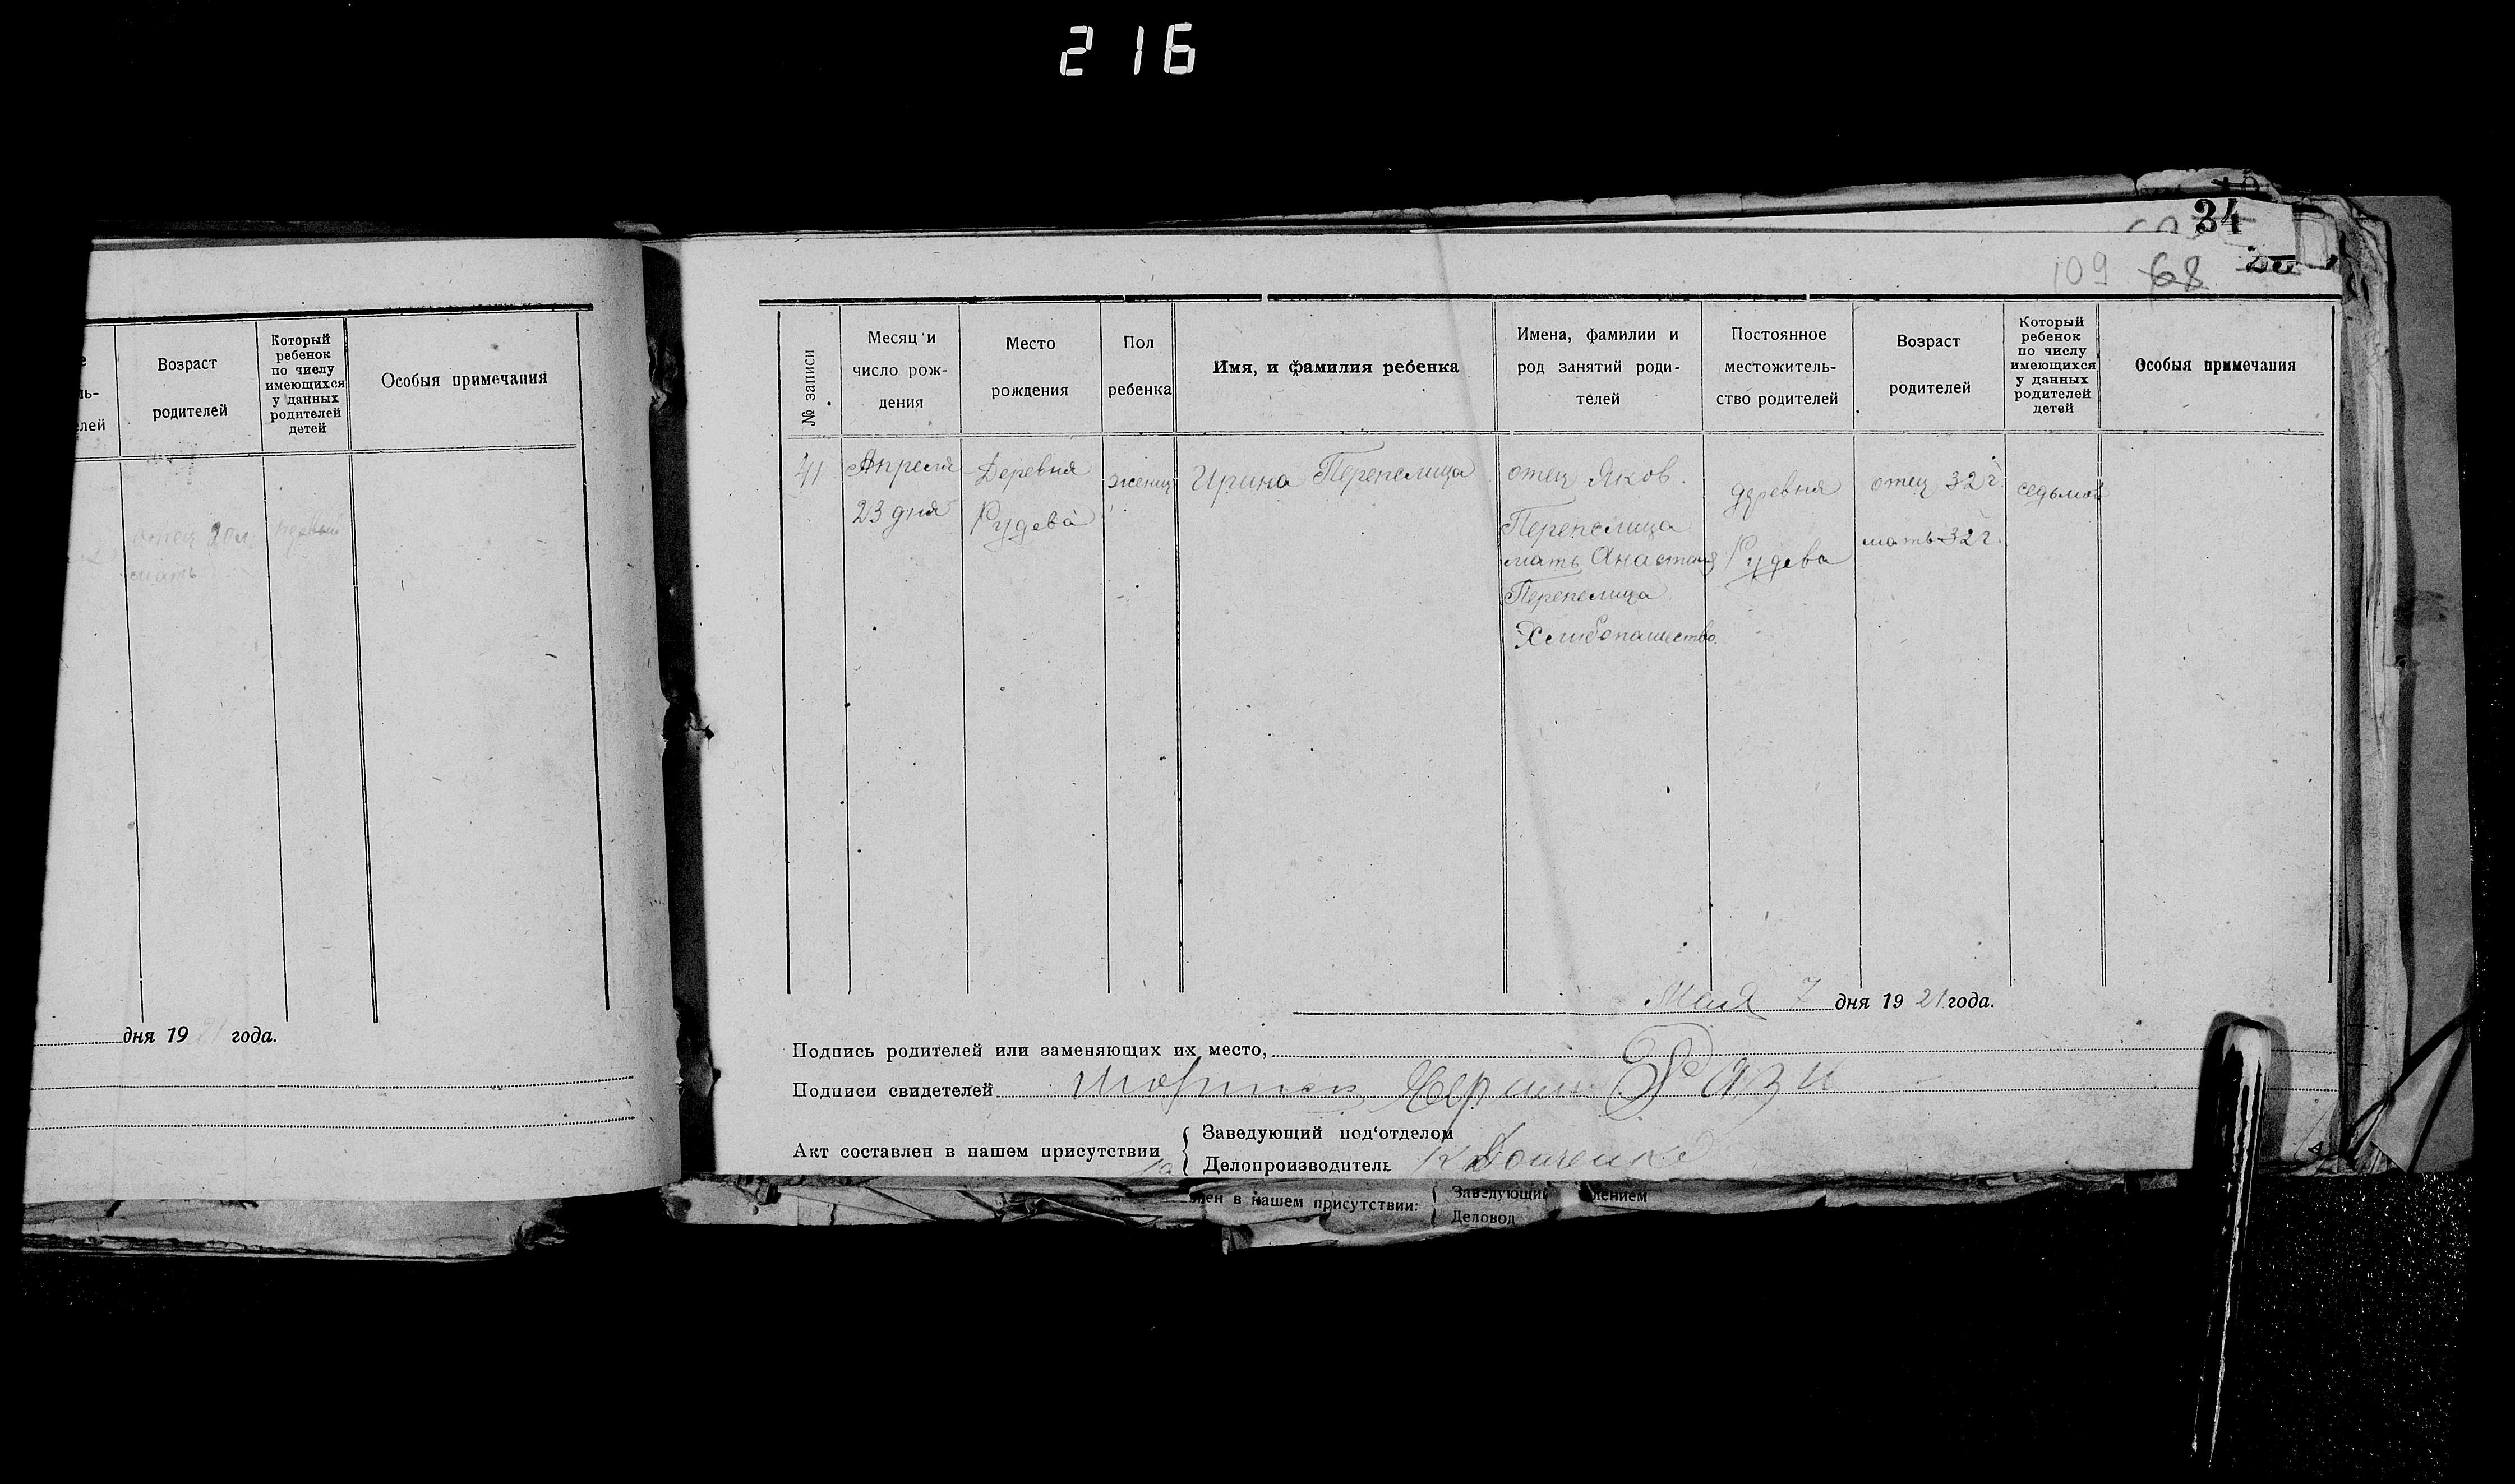 216
34
109 68
Возраст
родителей
Который
ребенок
по числу
имеющихся
у данных
родителей
детей
Особыя примечания
отец 20 л.
мать
дня 19 21 года.
№ записи
Месяц и
число рож-
дения
Место
рождения
Пол
ребенка
Имя, и фамилия ребенка
Имена, фамилии и
род занятий роди-
телей
Постоянное
местожитель-
ство родителей
Возраст
родителей
Который
ребенок
по числу
имеющихся
у данных
родителей
детей
Особыя примечания
41
Апреля
23 дня
Деревня
Рудева
женщ
Ирина Перепелица
отец Яков.
Перепелица
мать Анастася
Перепелица
Хлибопашество
деревня
Рудева
отец 32 г.
мать 32 г.
седьмой
Мая 7 дня 19 21 года.
Подпись родителей или заменяющих их место,
Подписи свидетелей
Акт составлен в нашем присутствии
Заведующий под'отделом
Делопроизводитель
лен в нашем присутствии:
Заведующий лением
Деловод